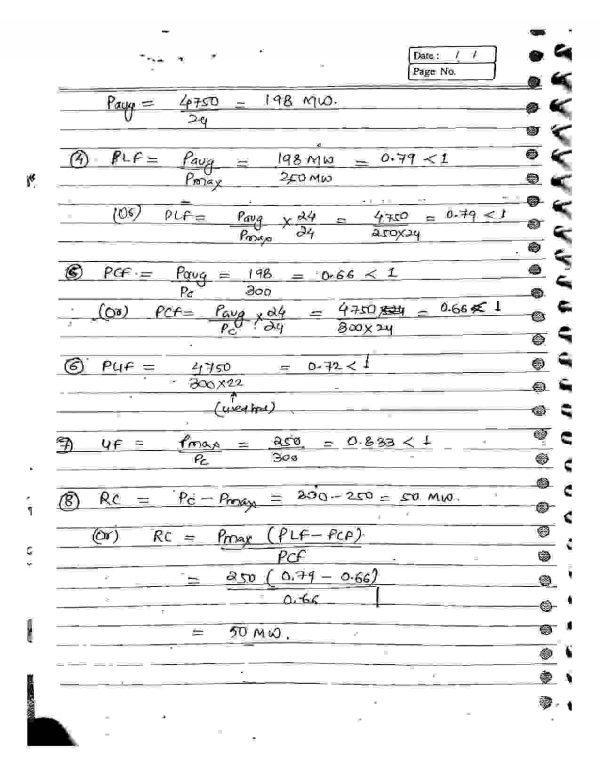 Date : / /
Page No.
Pavg = 4750/24 = 198 MW.
④ PLF = Pavg/Pmax = 198 MW/250 MW = 0.79 < 1
(Or) PLF = Pavg/Pmax × 24/24 = 4750/250×24 = 0.79 < 1
⑤ PCF = Pavg/Pc = 198/300 = 0.66 < 1
(Or) PCF = Pavg/Pc × 24/24 = 4750/300×24 = 0.66 < 1
⑥ PUF = 4750/300×22 = 0.72 < 1
⑦ UF = Pmax/Pc = 250/300 = 0.833 < 1
⑧ RC = Pc - Pmax = 300 - 250 = 50 MW.
(Or) RC = Pmax (PLF - PCF)/PCF
= 250 (0.79 - 0.66)/0.66
= 50 MW.